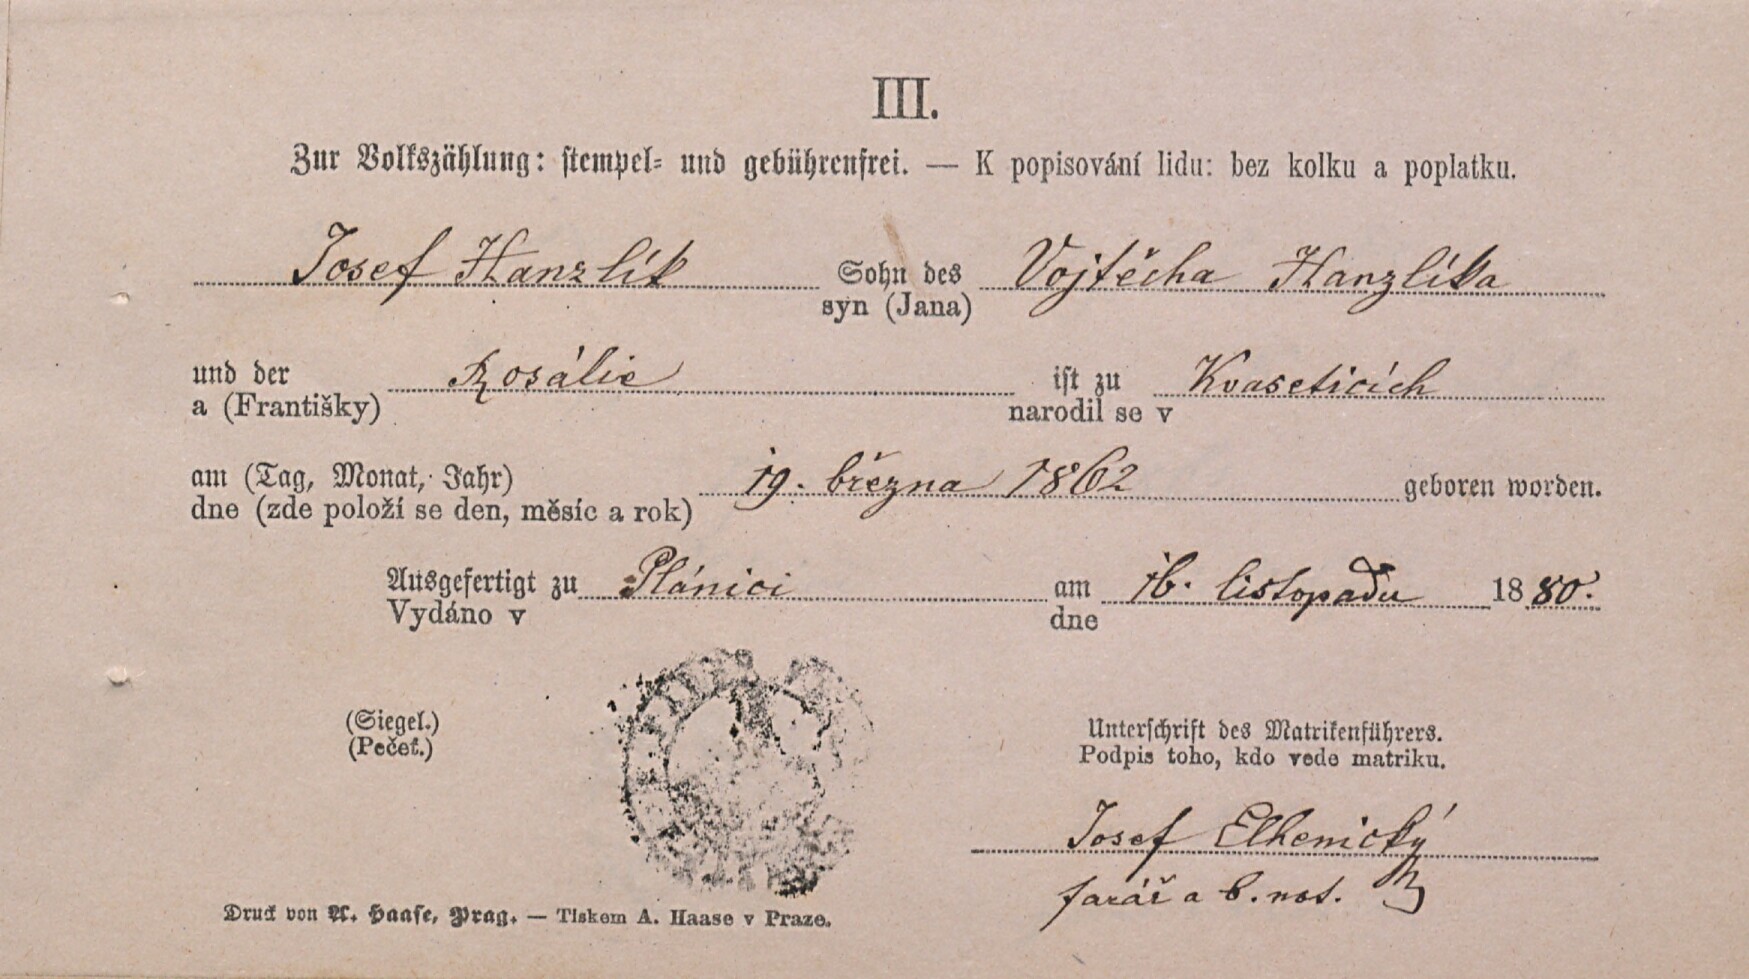 III.
Zur Volkszählung: stempel- und gebührenfrei. — K popisování lidu: bez kolku a poplatku.
Josef Hanzlík Sohn des Vojtěcha Hanzlíka
syn (Jana)
und der Rosálie ist zu Kvaseticích
a (Františky) narodil se v
am (Tag, Monat, Jahr) 19. března 1862 geboren worden.
dne (zde položí se den, měsíc a rok)
Ausgefertigt zu Plánici am 16. listopadu 1880.
Vydáno v dne
(Siegel.)
(Pečeť.)
Unterschrift des Matrikenführers.
Podpis toho, kdo vede matriku.
Josef Elhenický
farář a b. not.
Druck von A. Haase, Prag. — Tiskem A. Haase v Praze.